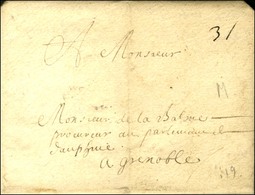 31
A Monsieur
Monsieur de la
procureur au parlement
dauphiné
a grenoble